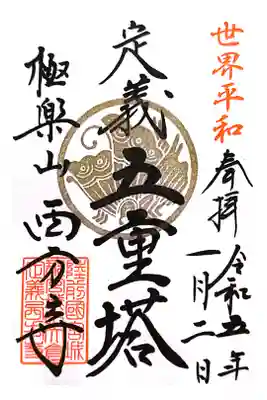 世界平和
奉拝 令和五年
一月二日
定義
五重塔
極楽山西方寺